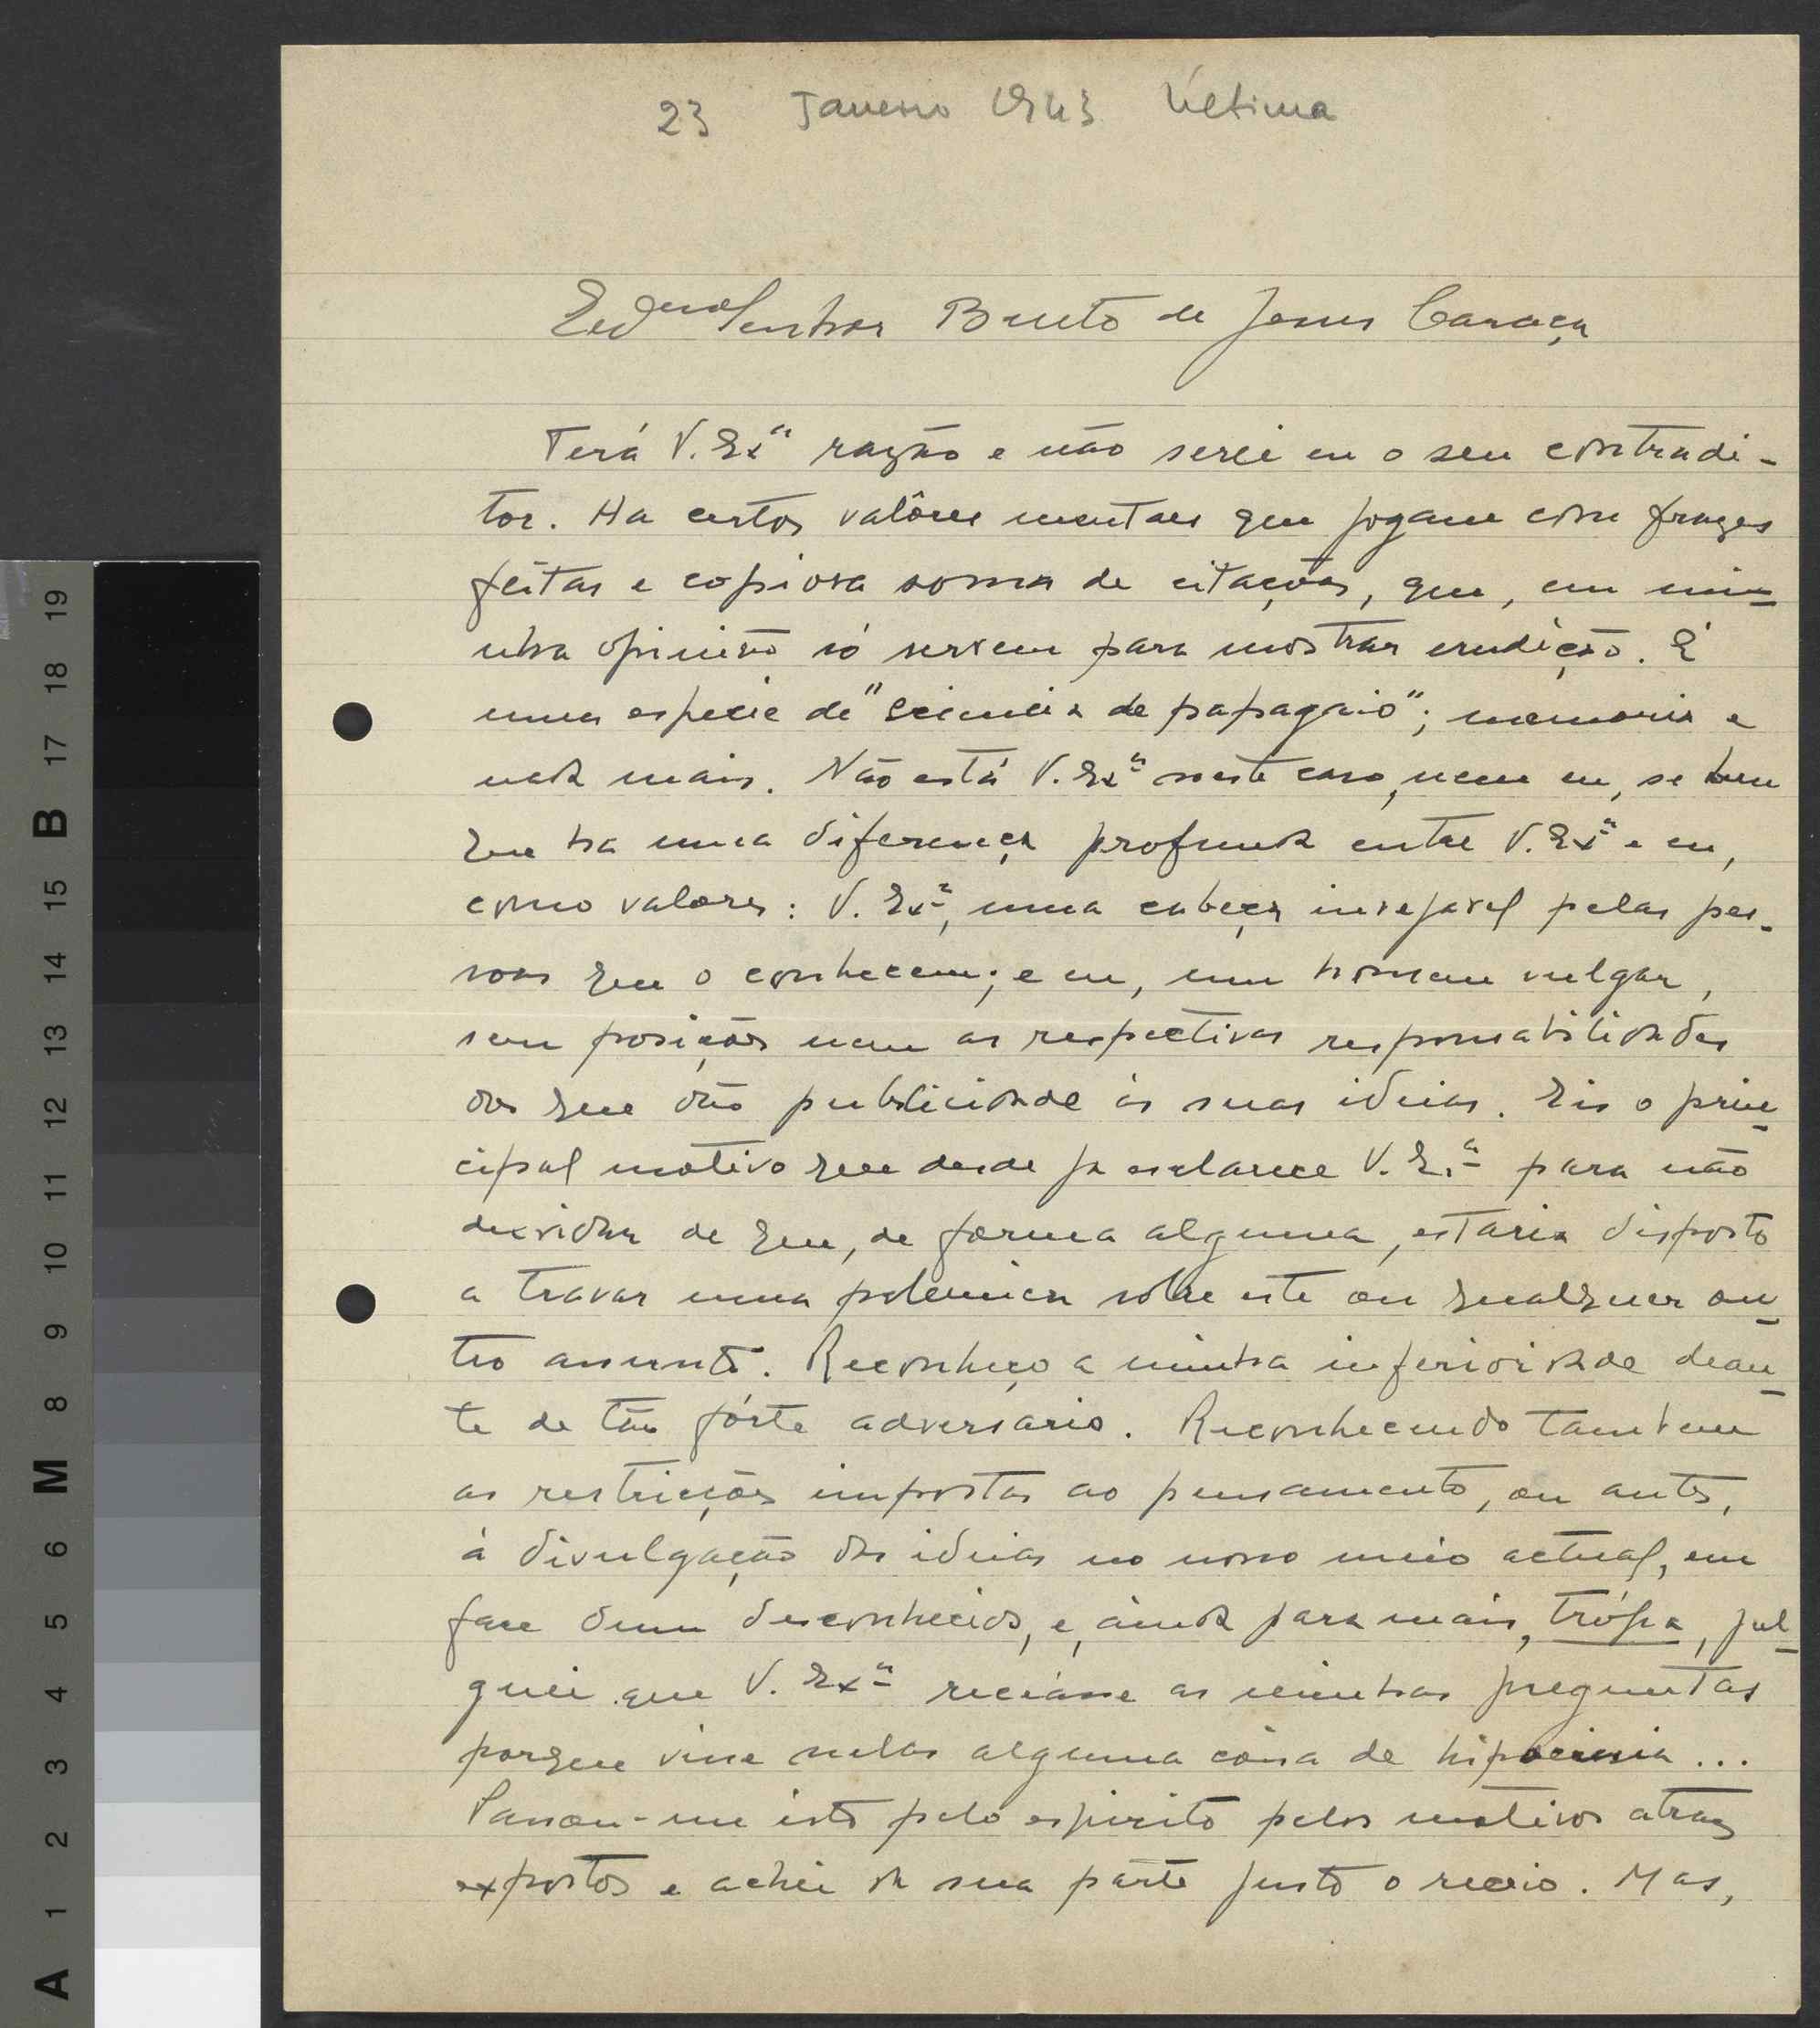 23 Janeiro 1943 Última
Exmo Senhor Bento de Jesus Caraça
Terá V. Exª razão e não serei eu o seu contradi-
tor. Ha certos valôres mentaes que jogam com frazes
feitas e copiosa soma de citações, que, em mi-
nha opinião só servem para mostrar erudição. É
uma especie de "sciencia de papagaio"; memoria e
nada mais. Não está V. Exª neste caso, nem eu, se bem
que ha uma diferença profunda entre V. Exª e eu,
como valores: V. Exª, uma cabeça invejavel pelas pes-
soas que o conhecem; e eu, um homem vulgar,
sem posições nem as respectivas responsabilidades
dos que dão publicidade ás suas ideias. Eis o prin-
cipal motivo que desde ja esclarece V. Exª para não
duvidar de que, de forma alguma, estaria disposto
a travar uma polemica sobre este ou qualquer ou-
tro assunto. Reconheço a minha inferioridade dean-
te de tão fórte adversario. Reconhecendo tambem
as restricções impostas ao pensamento, ou antes,
á divulgação das ideias no nosso meio actual, em
face dum desconhecido, e, ainda para mais, trópa, jul-
guei que V. Exª receásse as minhas preguntas
porque visse nelas alguma coisa de hipocrisia...
Passou-me isto pelo espirito pelos motivos atraz
expostos e achei da sua parte justo o receio. Mas,